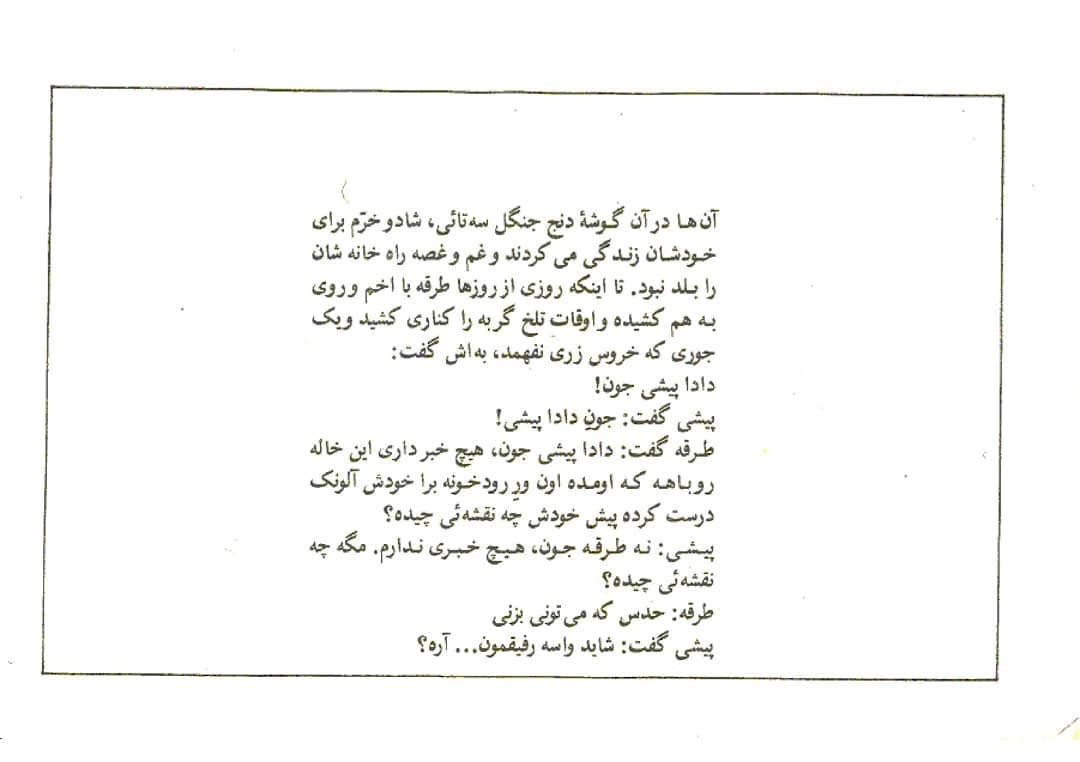 آن‌ها در آن گوشهٔ دنج جنگل سه‌تائی، شاد و خرّم برای
خودشان زندگی می‌کردند و غم و غصه راه خانه شان
را بلد نبود. تا اینکه روزی از روزها طرقه با اخم و روی
به هم کشیده و اوقات تلخ گربه را کناری کشید و یک
جوری که خروس زری نفهمد، به‌اش گفت:
دادا پیشی جون!
پیشی گفت: جونِ دادا پیشی!
طرقه گفت: دادا پیشی جون، هیچ خبر داری این خاله
روباهه که اومده اون ورِ رودخونه برا خودش آلونک
درست کرده پیش خودش چه نقشه‌ئی چیده؟
پیشی: نه طرقه جون، هیچ خبری ندارم. مگه چه
نقشه‌ئی چیده؟
طرقه: حدس که می‌تونی بزنی
پیشی گفت: شاید واسه رفیقمون... آره؟